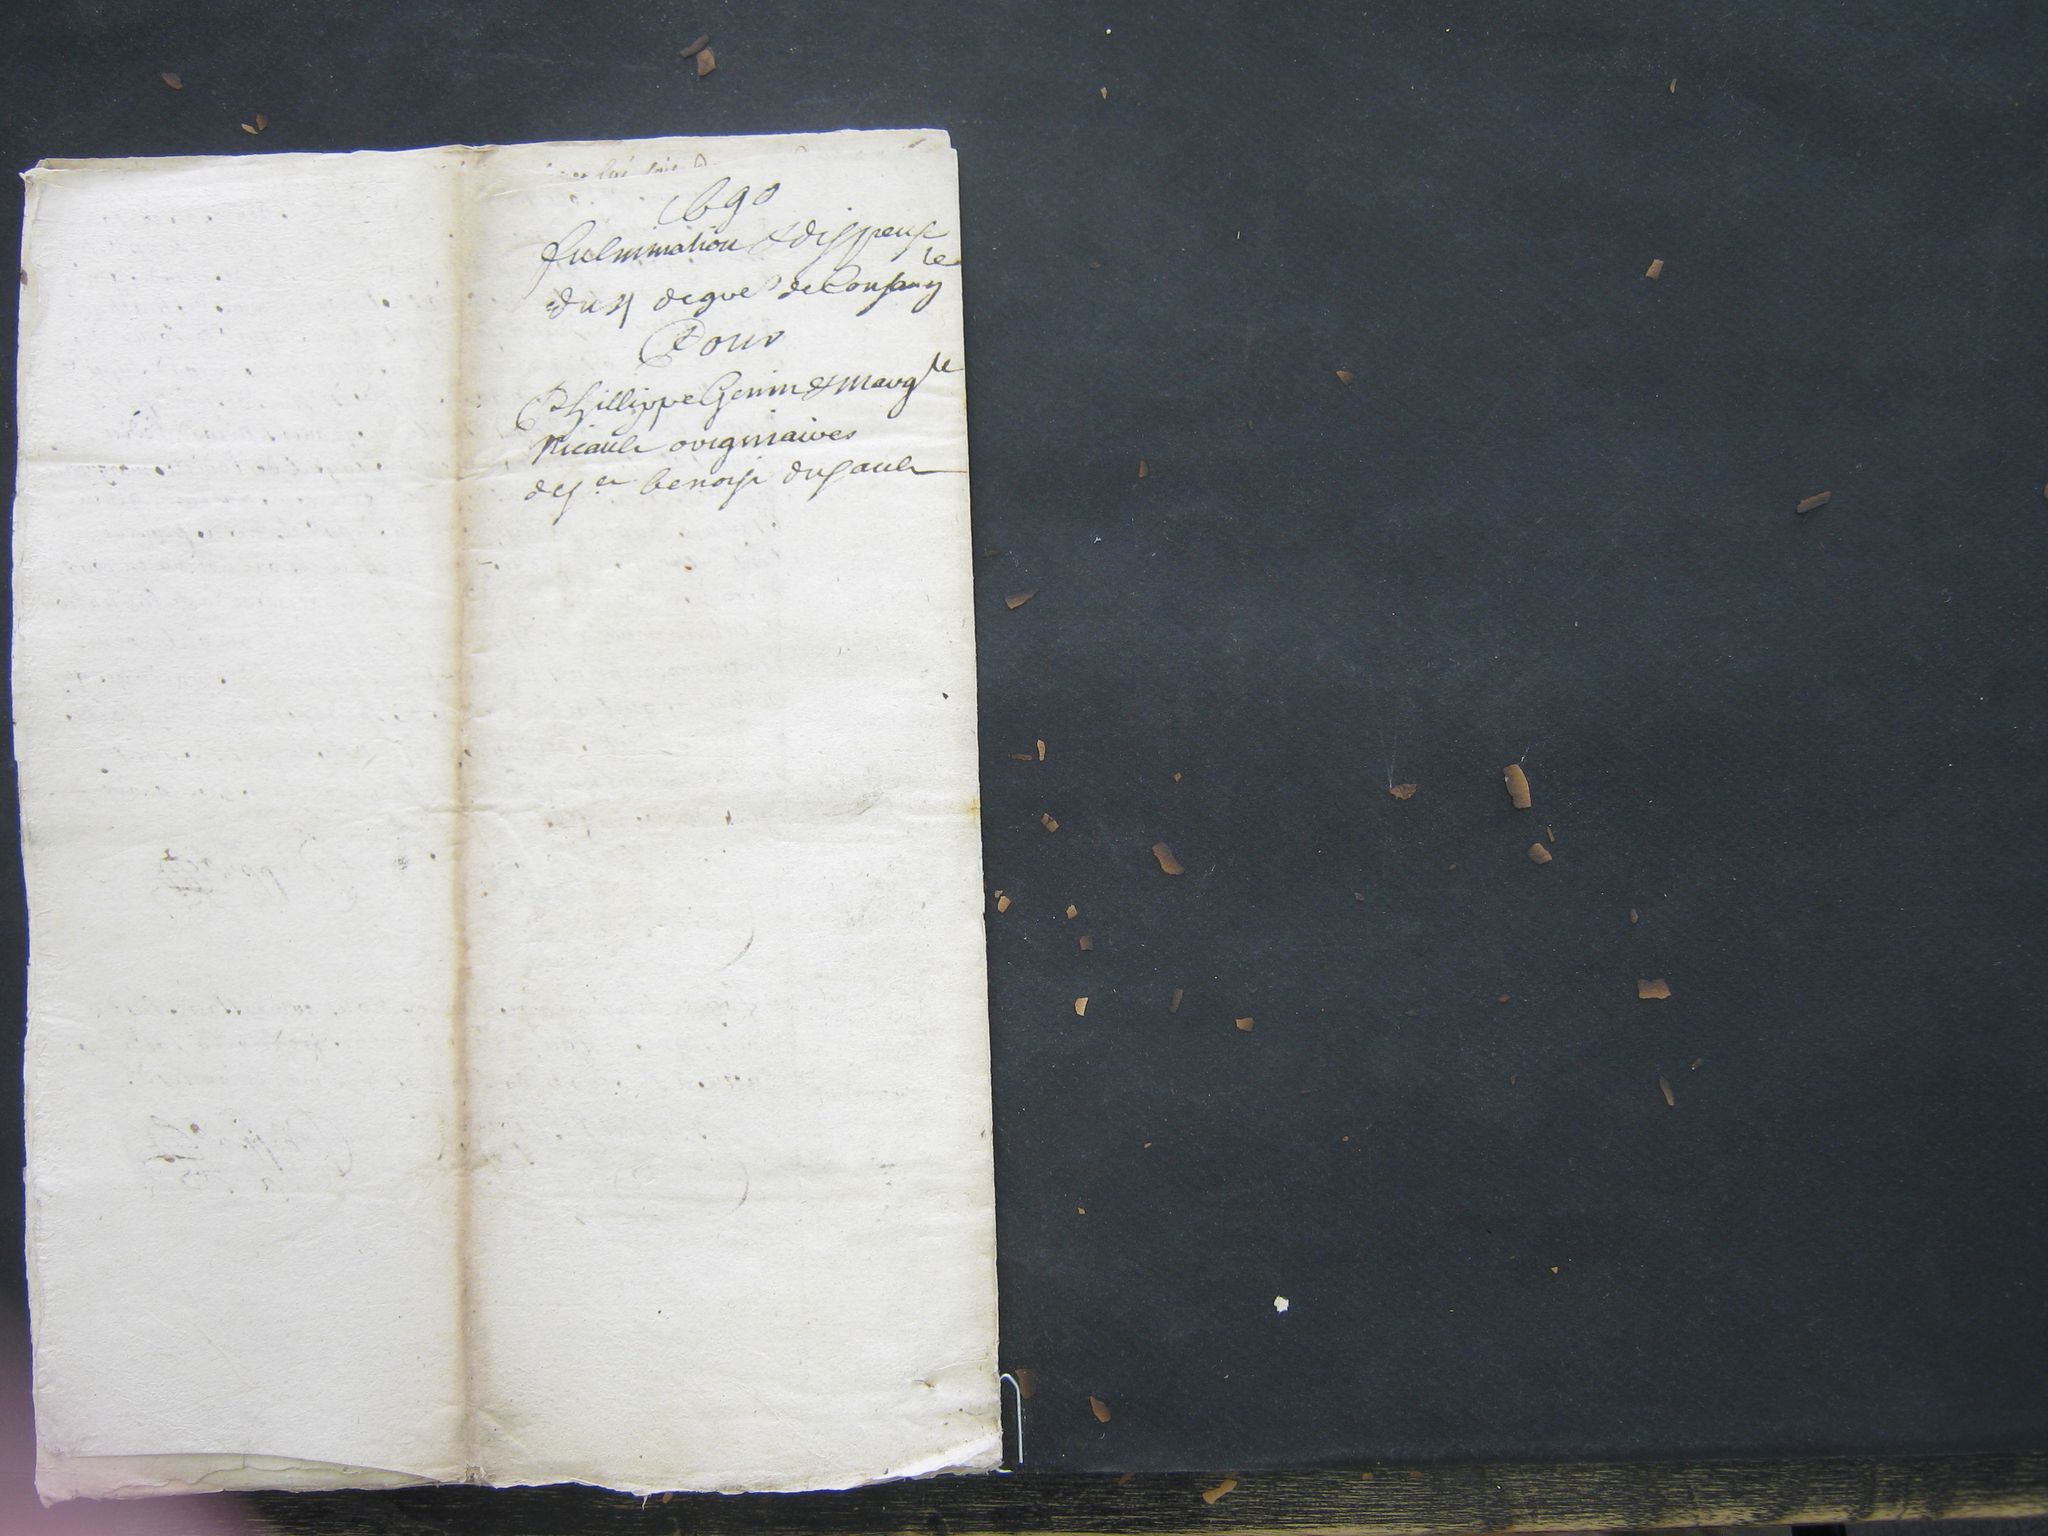 1690
fulmination & dispense
du 4 degré de Consang^té
Pour
Phillippe Genin & Marg^te
Nicault originaires
de S^t benoist du Sault